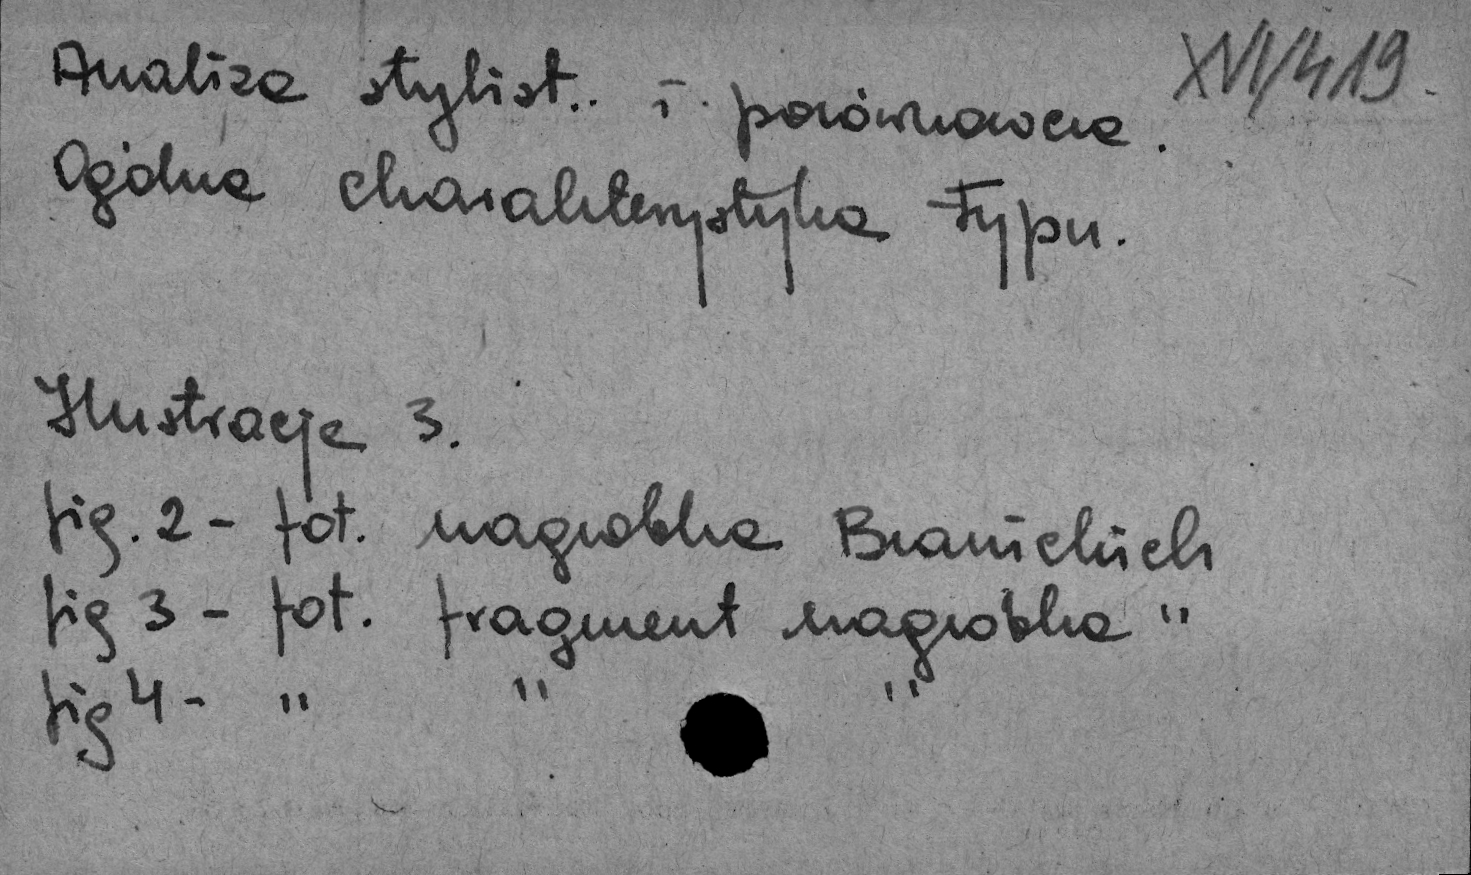 XVI/419.
Analiza stylist.. i porównawcza.
Ogólna charakterystyka Typu.
Ilustracje 3.
fig. 2 - fot. nagrobka Branickich
fig 3 - fot. fragment nagrobka "
fig 4 - " " "